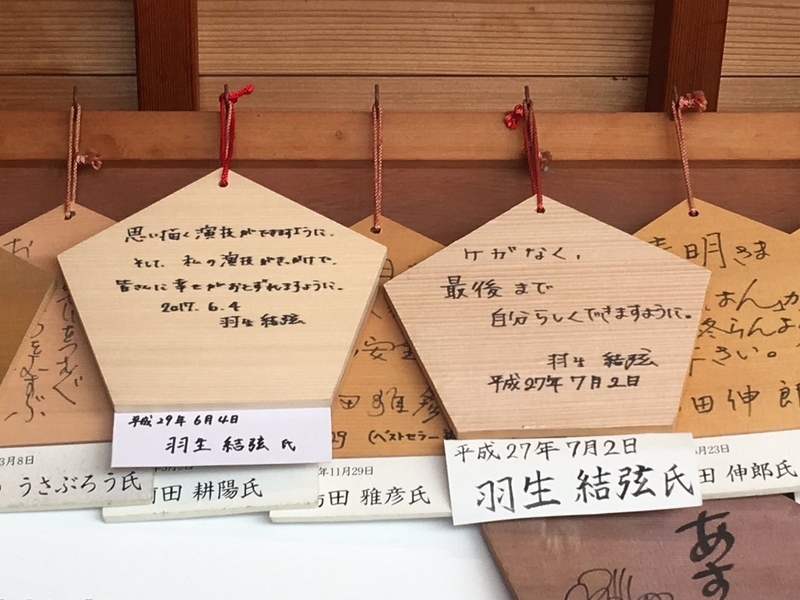 思い描く演技ができますように。
そして、私の演技がきっかけで、
皆さんに幸せがおとずれますように。
2017. 6. 4
羽生結弦
平成29年6月4日
羽生 結弦 氏
ケガなく、
最後まで
自分らしくできますように。
羽生 結弦
平成27年7月2日
平成27年7月2日
羽生 結弦氏
明さま
田 伸郎
3月8日
うさぶろう氏
田 耕陽氏
年11月29日
田 雅彦氏
(ベストセラー
月23日
田 伸郎氏
あす